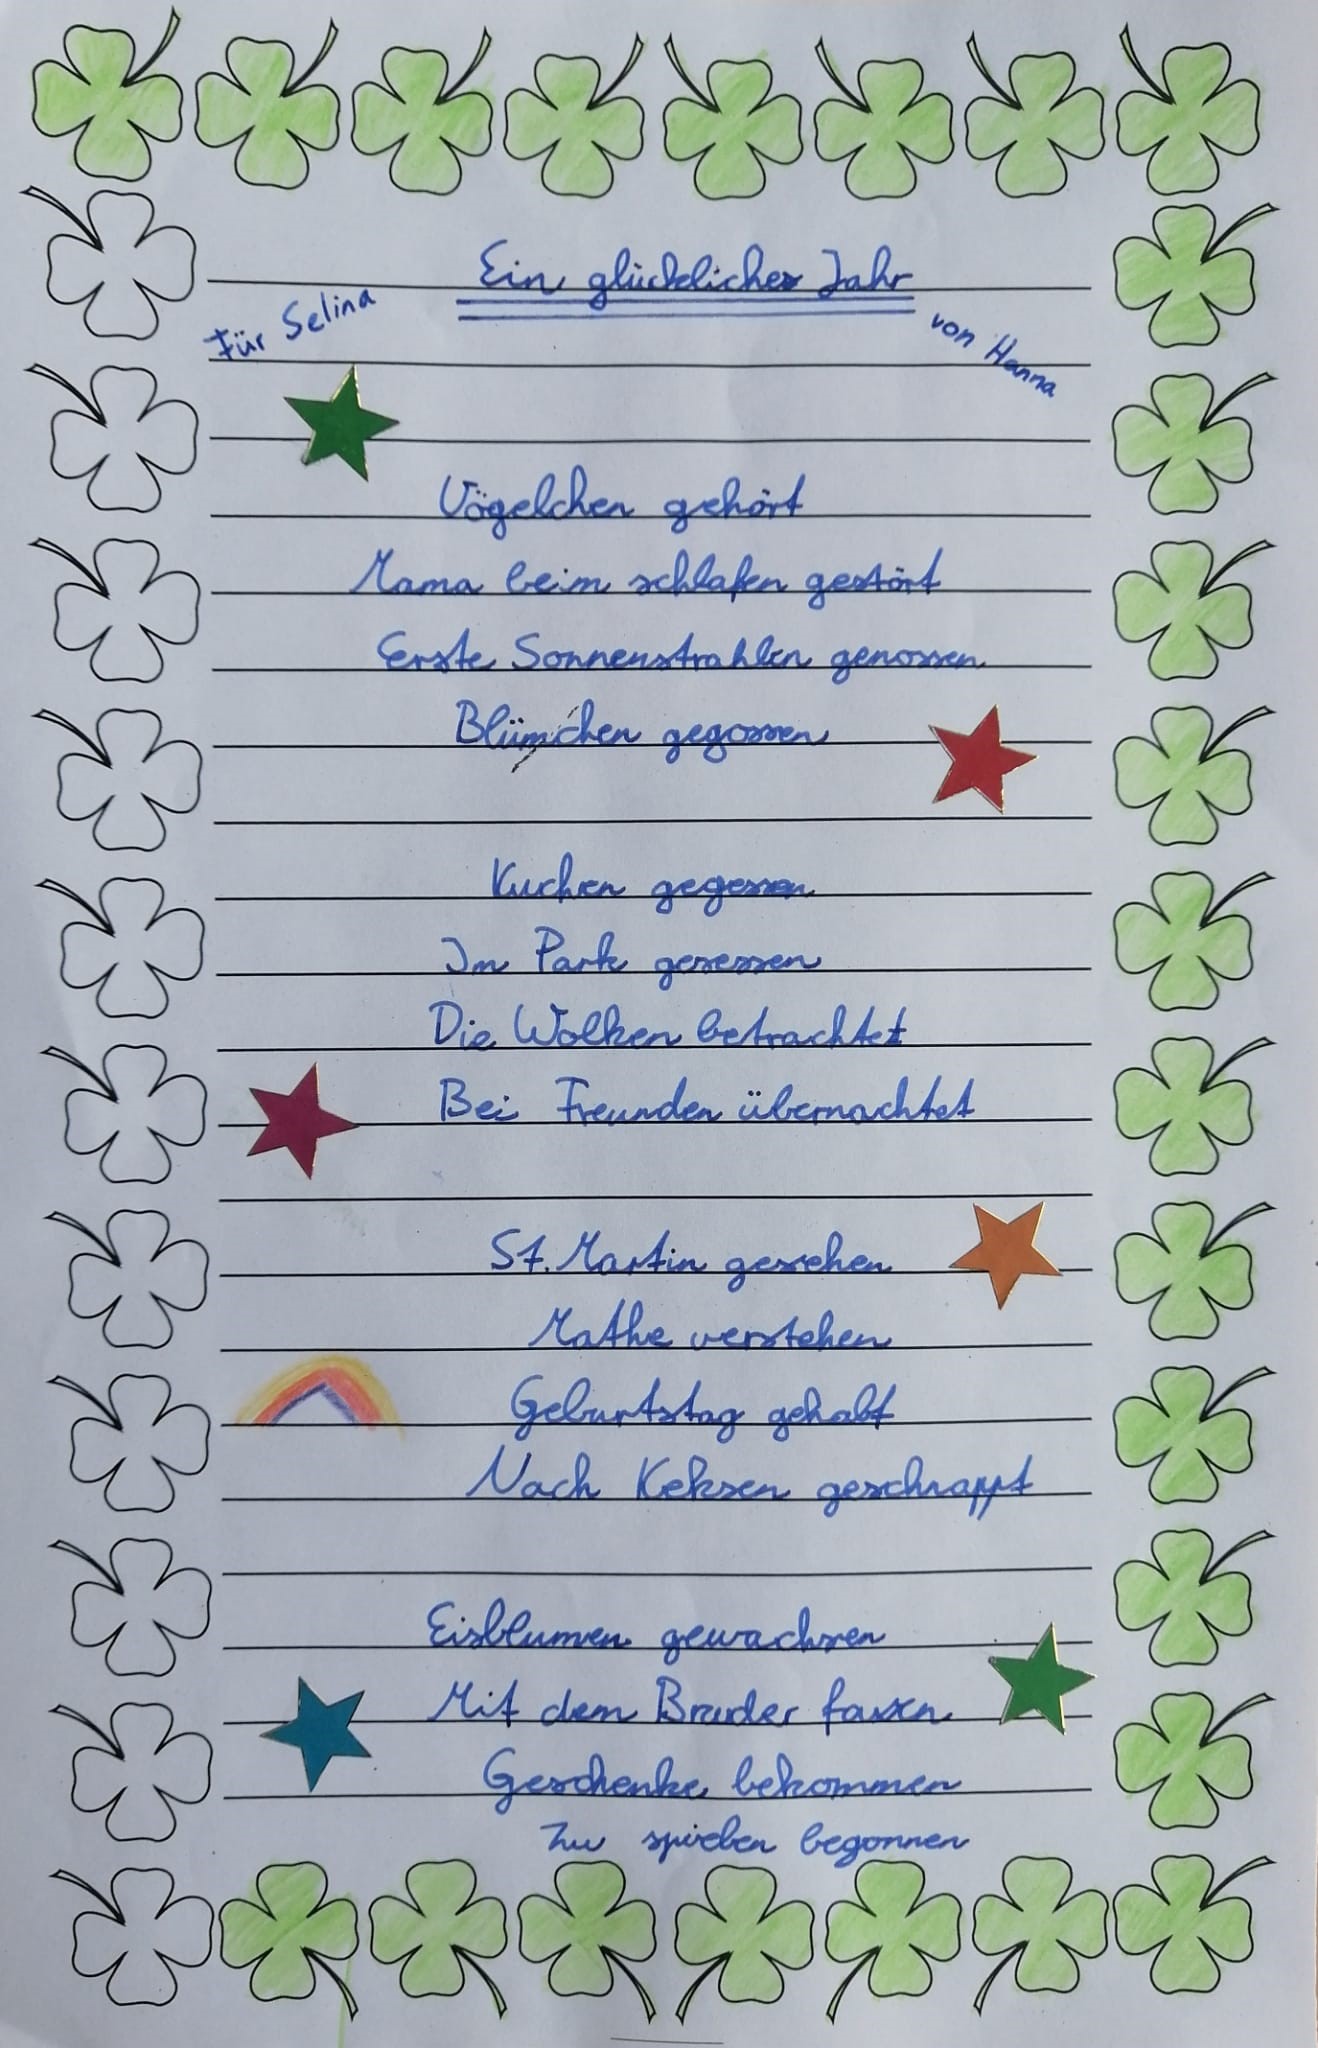 Ein glückliches Jahr
Für Selina
von Hanna
Vögelchen gehört
Mama beim schlafen gestört
Erste Sonnenstrahlen genossen
Blümchen gegossen
Kuchen gegessen
Im Park gesessen
Die Wolken betrachtet
Bei Freunden übernachtet
St. Martin gesehen
Mathe verstehen
Geburtstag gehabt
Nach Keksen geschnappt
Eisblumen gewachsen
Mit dem Bruder faxen
Geschenke bekommen
Zu spielen begonnen